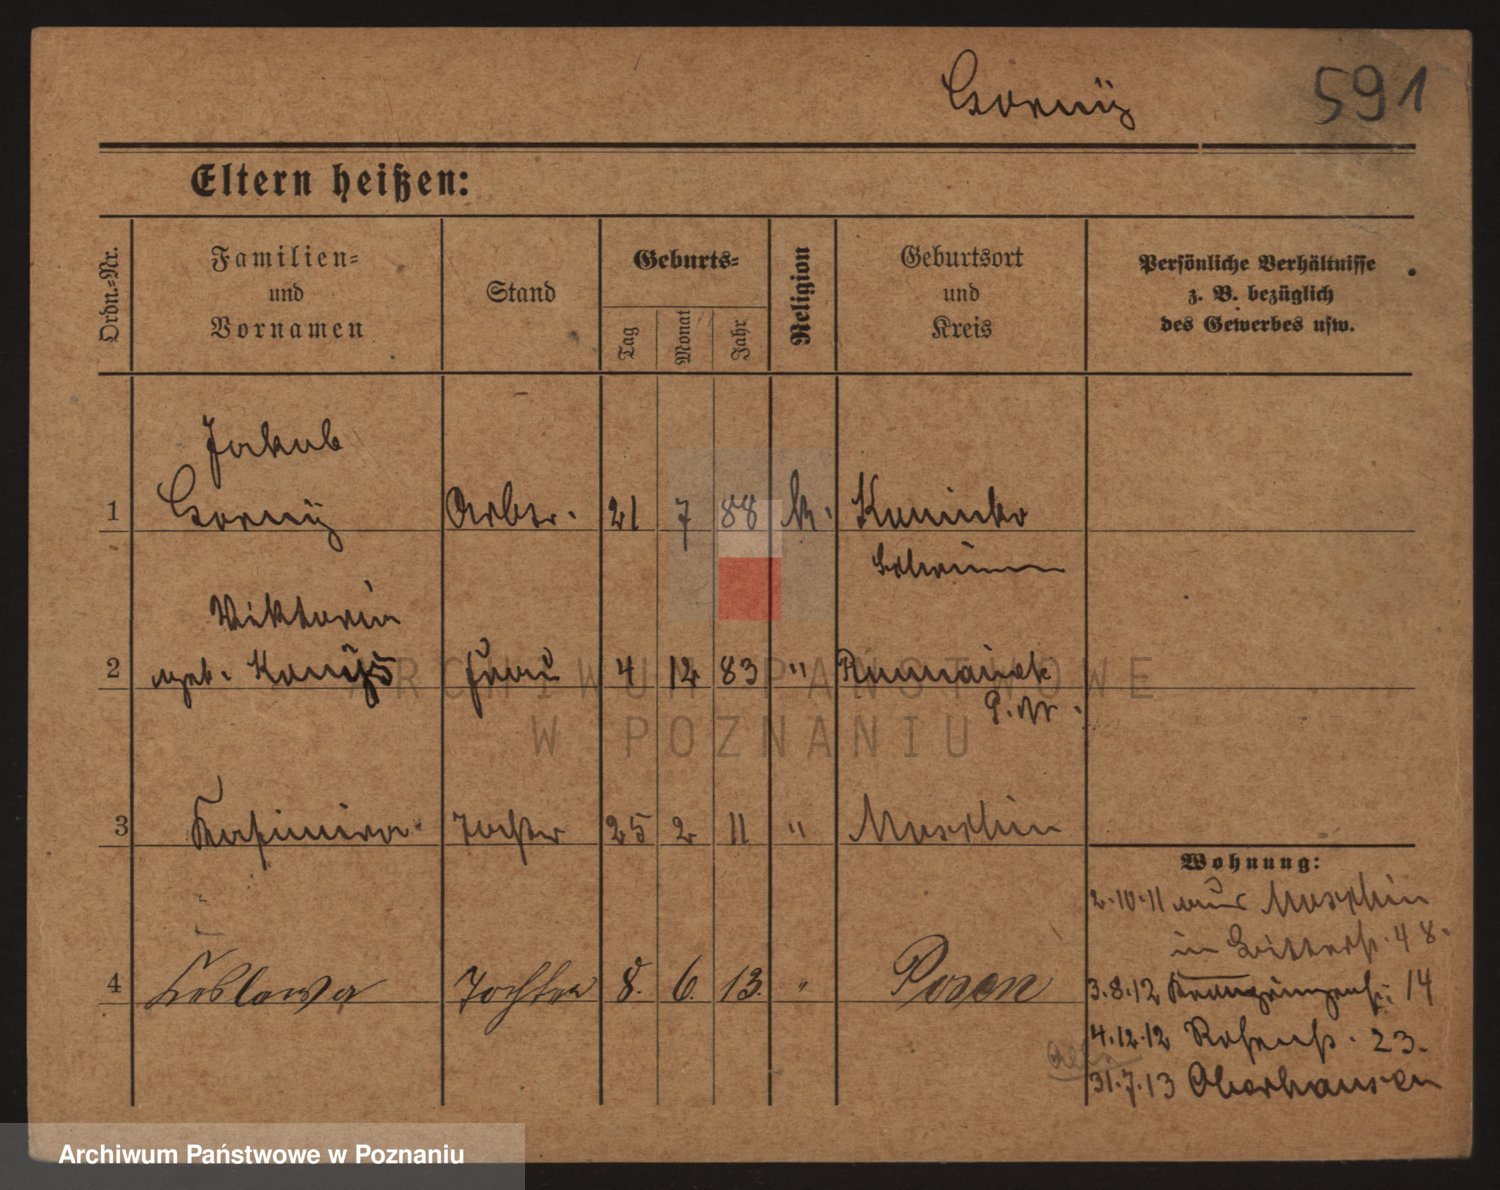 Gorny
591
Eltern heißen:
Ordn.=Nr.
Familien=
und
Vornamen
Stand
Geburts=
Tag
Monat
Jahr
Religion
Geburtsort
und
Kreis
Persönliche Verhältnisse
z. B. bezüglich
des Gewerbes usw.
Jakob
1 Gorny Arbtr. 21 7 88 k. Kaminko
Schrimm
Viktoria
2 geb. Frau 4 12 83 "
P. W.
3 Kasimira Tochter 25 2 11 " Moschin
Wohnung:
2.10.11 aus Moschin
in Bitterstr. 48.
4 Tochter 8. 6. 13. " Posen
3.8.12 14
4.12.12 Rosenstr. 23.
31.7.13 Oberhausen
ARCHIWUM PAŃSTWOWE
W POZNANIU
Archiwum Państwowe w Poznaniu